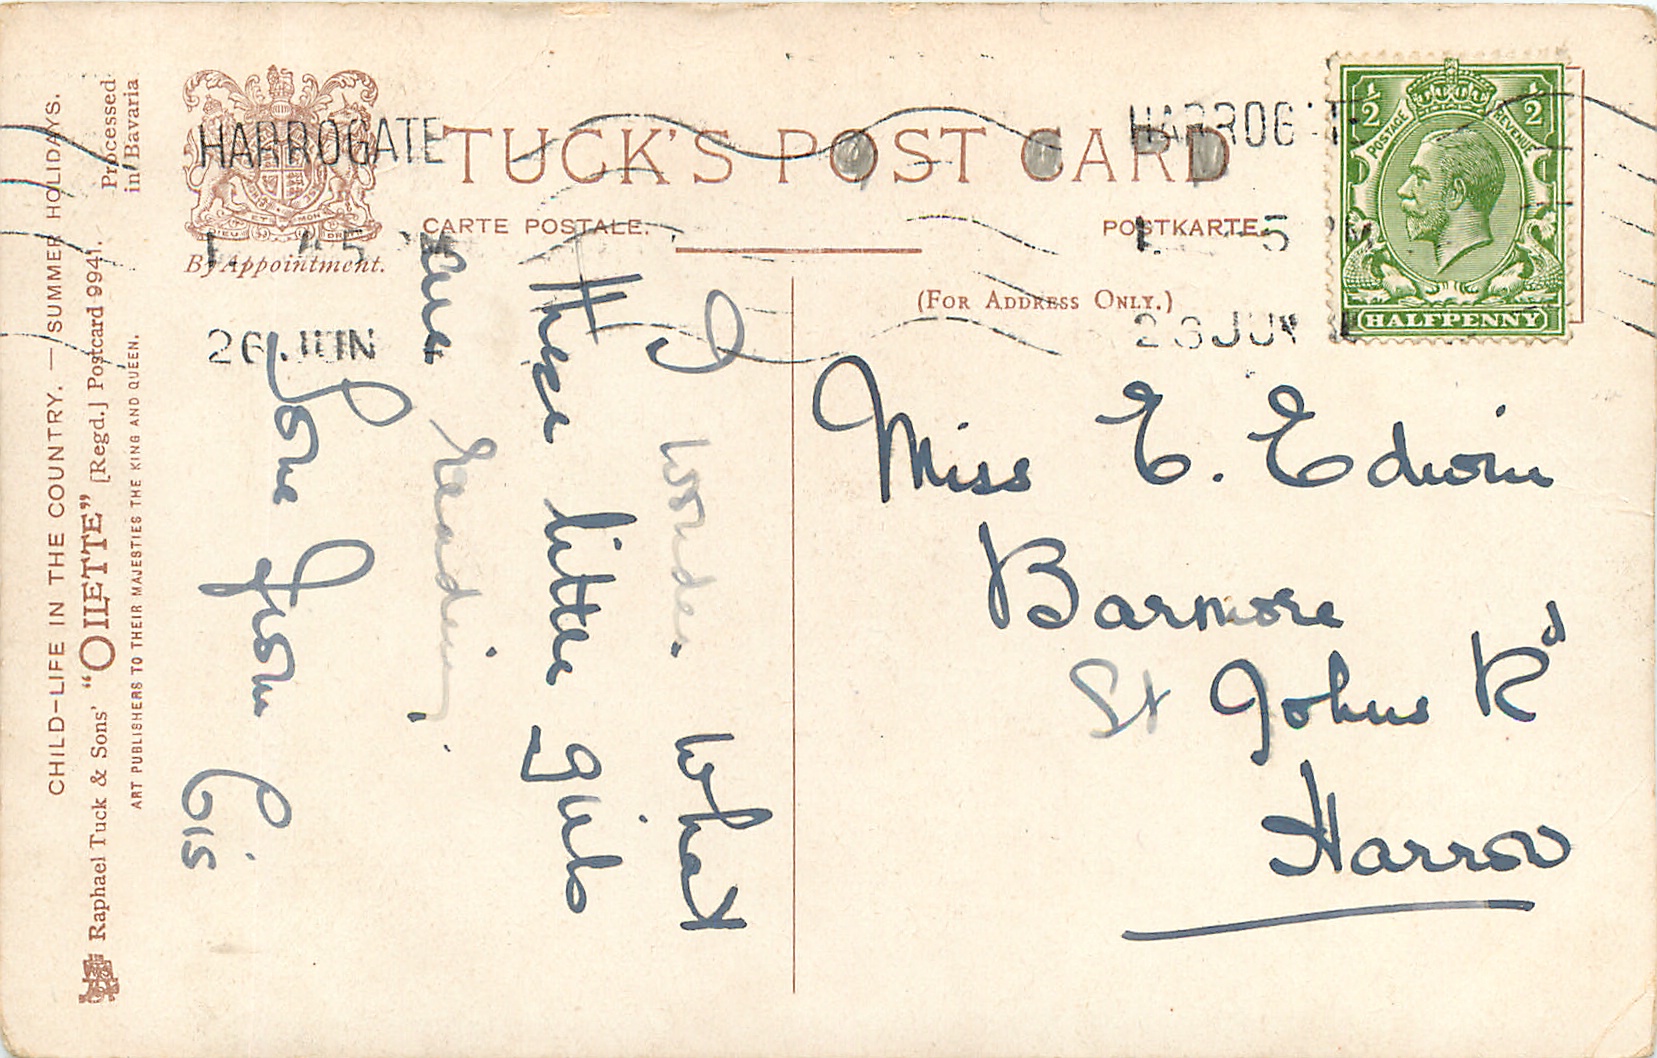 CHILD-LIFE IN THE COUNTRY. — SUMMER HOLIDAYS.
Raphael Tuck & Sons' "OILETTE" [Regd.] Postcard 9941.
Processed
in Bavaria
ART PUBLISHERS TO THEIR MAJESTIES THE KING AND QUEEN.
By Appointment.
TUCK'S POST CARD
CARTE POSTALE.
POSTKARTE.
(FOR ADDRESS ONLY.)
HARROGATE
26 JUN
½ ½
POSTAGE REVENUE
HALFPENNY
I wonder what
these little girls
are reading
Love from
Cis
Miss E. Edwin
Barmore
St Johns Rd
Harrow